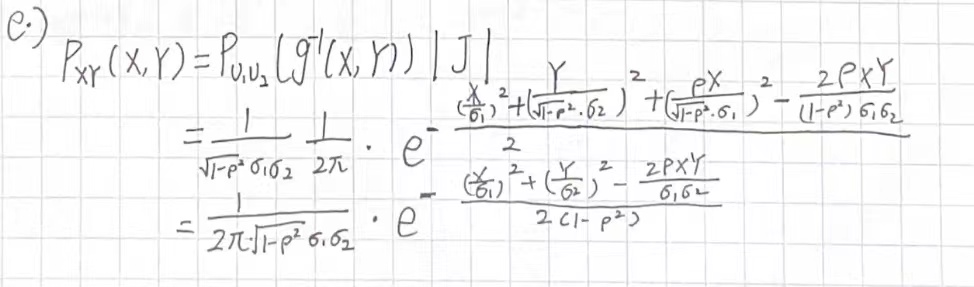 e.)
P_{XY}(X,Y) = P_{U_1U_2}(g^{-1}(X,Y)) |J|
= \frac{1}{\sqrt{1-ρ^2} σ_1σ_2} \frac{1}{2π} · e^{- \frac{(\frac{X}{σ_1})^2 + (\frac{Y}{\sqrt{1-ρ^2}·σ_2})^2 + (\frac{ρX}{\sqrt{1-ρ^2}·σ_1})^2 - \frac{2ρXY}{(1-ρ^2)σ_1σ_2}}{2}}
= \frac{1}{2π·\sqrt{1-ρ^2} σ_1σ_2} · e^{- \frac{(\frac{X}{σ_1})^2 + (\frac{Y}{σ_2})^2 - \frac{2ρXY}{σ_1σ_2}}{2(1-ρ^2)}}